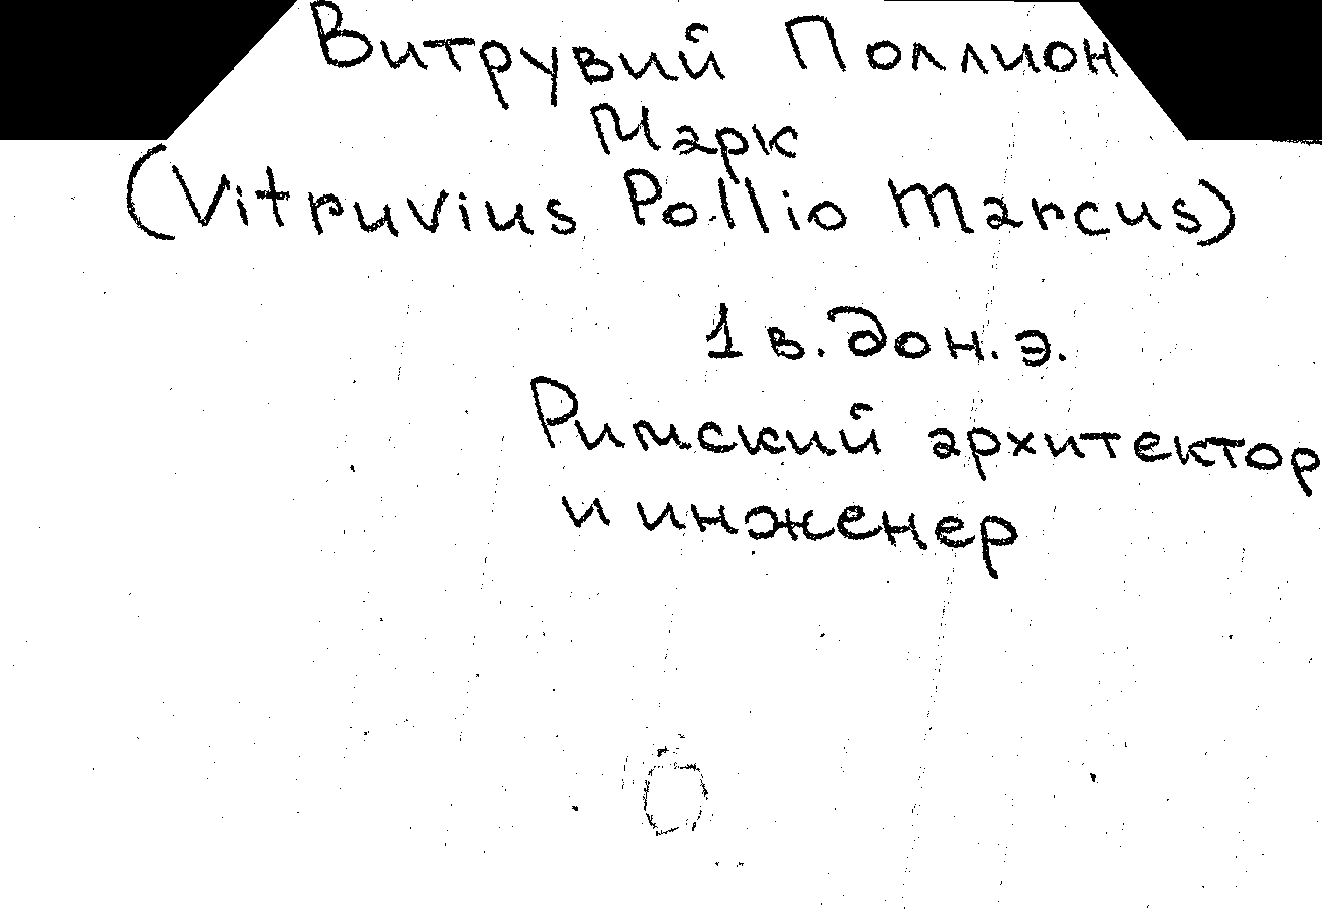 Витрувий Поллион
Марк
(Vitruvius Pollio Marcus)
1 в. до н. э.
Римский архитектор
и инженер